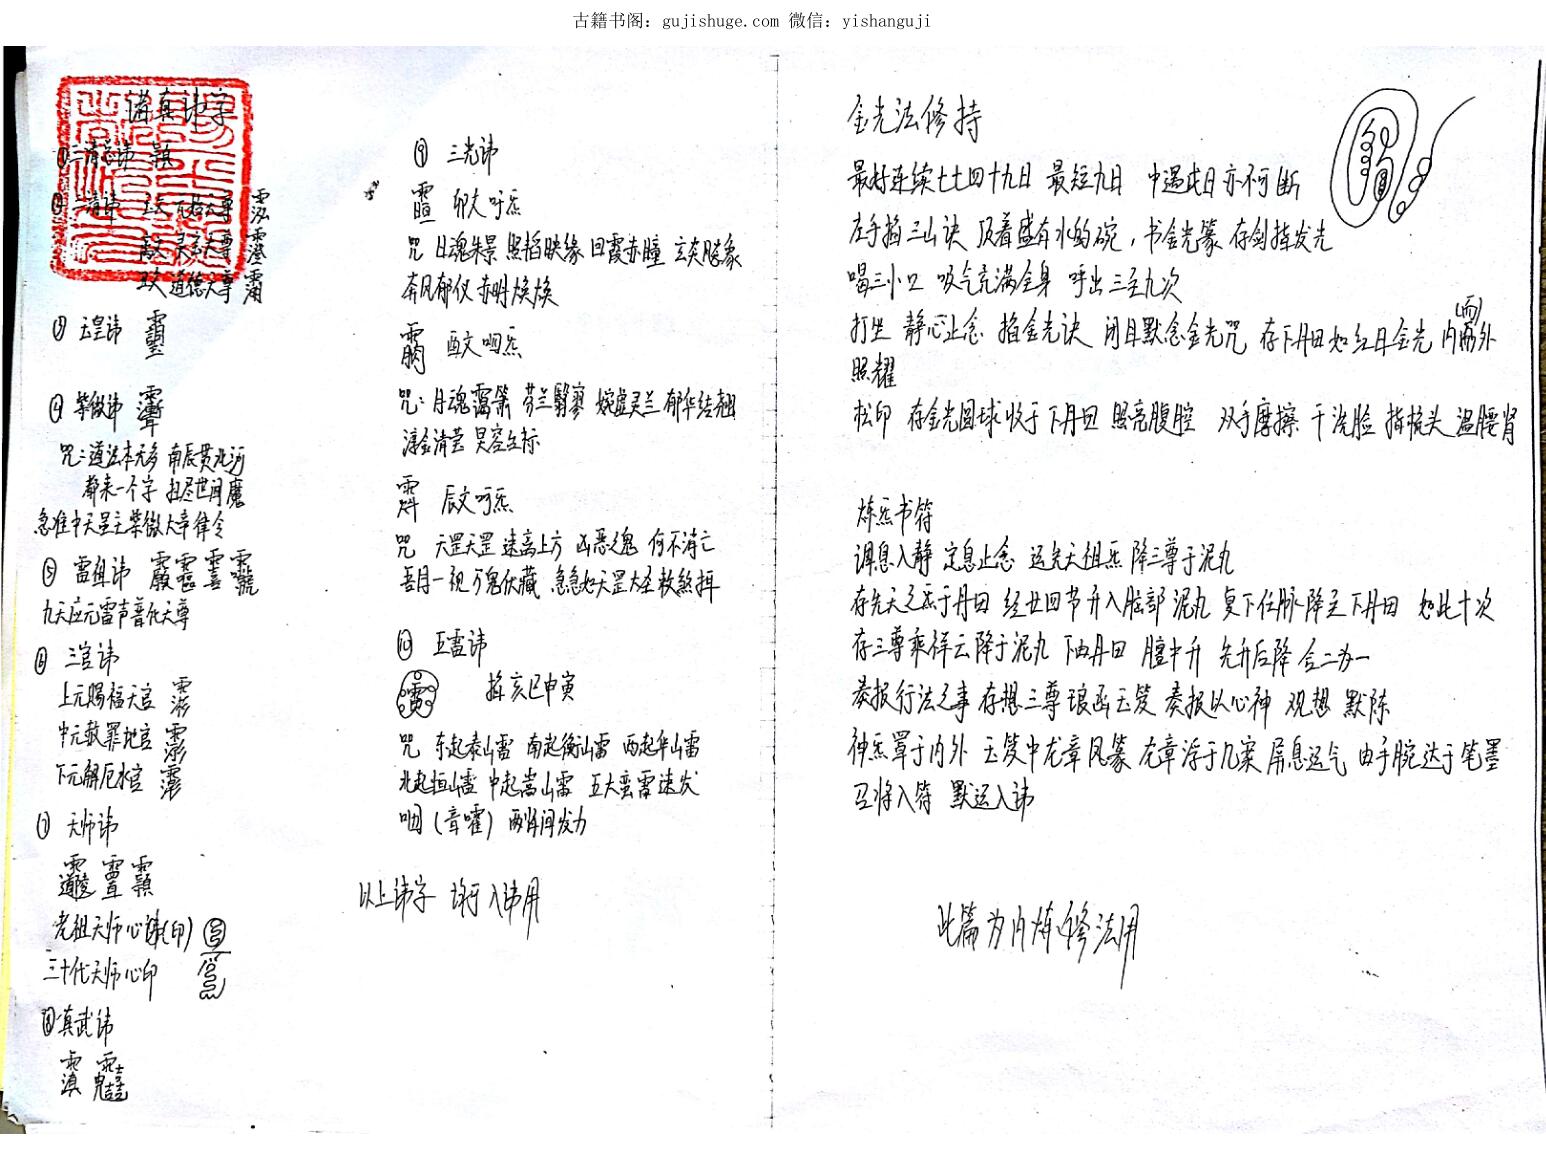 古籍书阁：gujishuge.com 微信：yishanguji
诸真讳字
①三清总讳
②三清讳
道德天尊
③玉皇讳
④紫微讳
咒：道法本无多 南辰贯北河
都来一个字 扫尽世间魔
急准中天星主紫微大帝律令
⑤雷祖讳
九天应元雷声普化天尊
⑥三官讳
上元赐福天官
中元赦罪地官
下元解厄水官
⑦天师讳
老祖天师心讳(印)
三十代天师心印
⑧真武讳
⑨三光讳
咒 日魂朱景 照韬映缘 回霞赤瞳 玄炎飚象
奔风郁仪 赤明焕焕
咒：月魂霭箓 芬兰翳寥 婉虚灵兰 郁华结翘
淳金清莹 炅容台标
辰文呵炁
咒 天罡天罡 速离上方 凶恶之鬼 何不消亡
吾目一视 万鬼伏藏 急急如天罡大圣敕煞摄
⑩五雷讳
掐亥巳申寅
咒 东起泰山雷 南起衡山雷 西起华山雷
北起恒山雷 中起嵩山雷 五大蛮雷速发
咽(音嚯) 两肾间发力
以上讳字 均可入讳用
金光法修持
最好连续七七四十九日 最短九日 中遇戊日亦不可断
左手掐三山诀 顶着盛有水的碗，书金光篆 存剑指发光
喝三小口 吸气充满全身 呼出三至九次
打坐 静心止念 掐金光诀 闭目默念金光咒 存下丹田如红日金光 内而外
照耀
松印 存金光圆球收于下丹田 照亮腹腔 双手摩擦 干洗脸 指梳头 温腰肾
炼炁书符
调息入静 定息止念 运先天祖炁 降三尊于泥丸
存先天之炁于丹田 经廿四节升入脑部 泥丸 复下任脉降至下丹田 如此十次
存三尊乘祥云降于泥丸 下由丹田 膻中升 先升后降 合二为一
奏报行法之事 存想三尊琅函玉笈 奏报以心神 观想 默陈
神炁罩于内外 玉笈中龙章凤篆 龙章浮于几案 屏息运气 由手腕达于笔墨
召将入符 默运入讳
此篇为内炼修法用